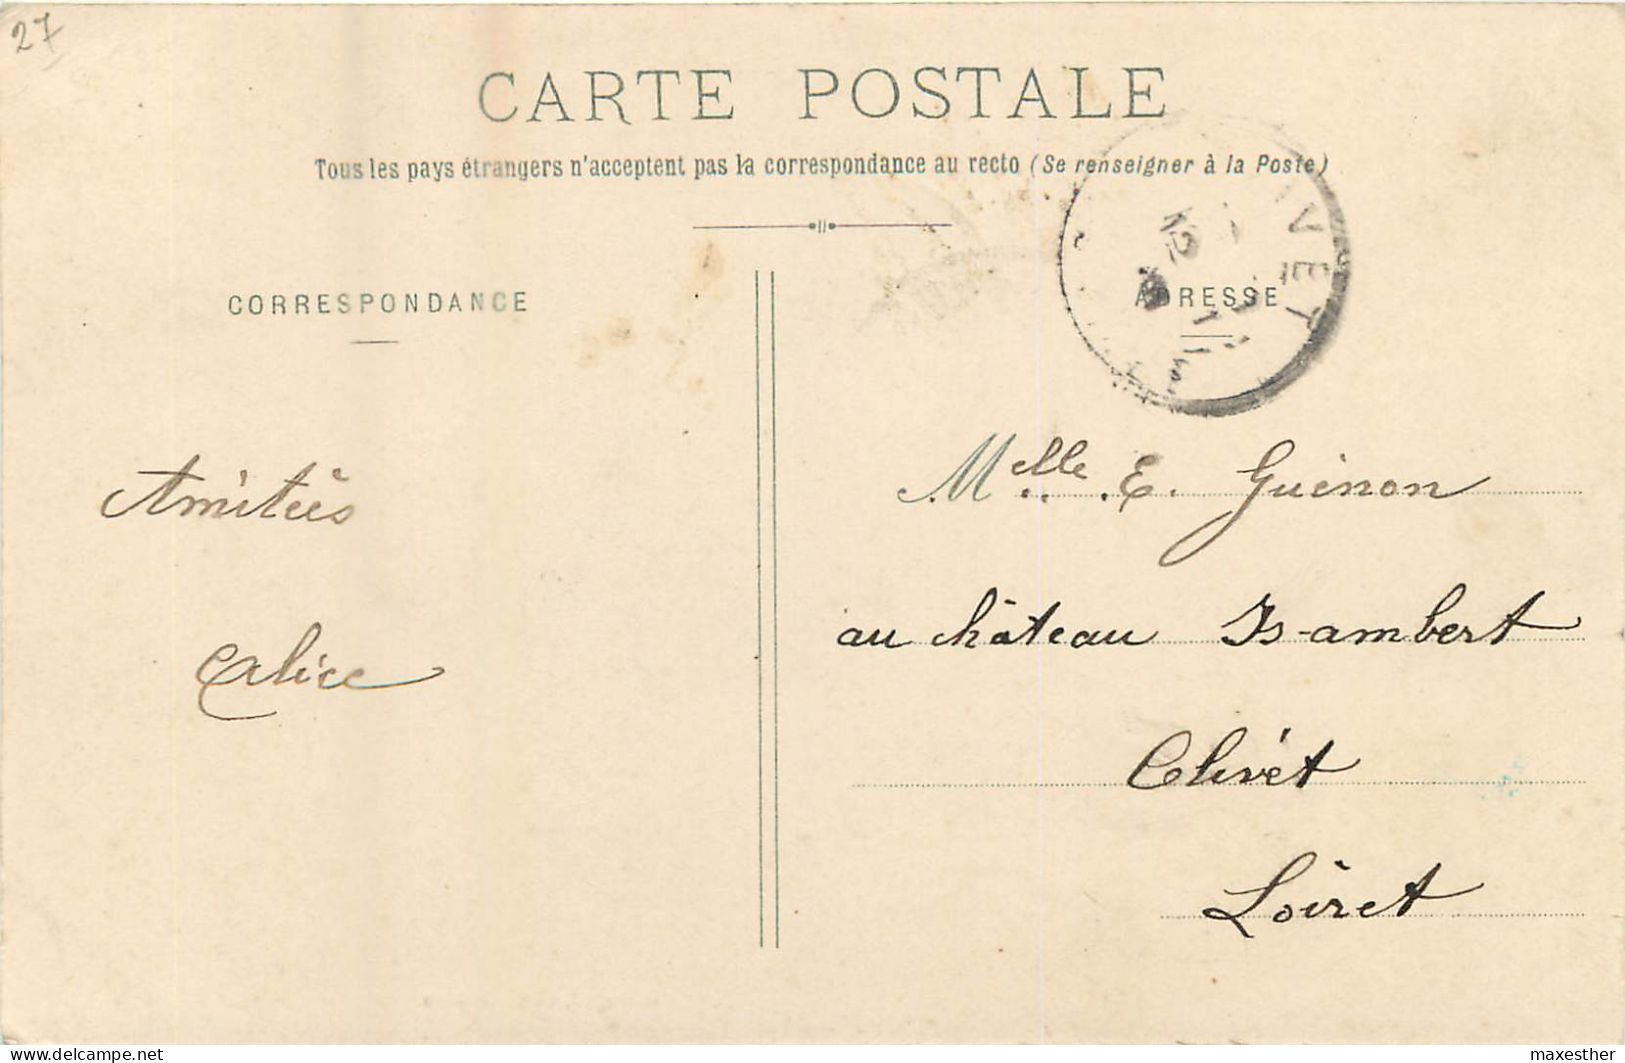 27
CARTE POSTALE
Tous les pays étrangers n'acceptent pas la correspondance au recto (Se renseigner à la Poste)
CORRESPONDANCE
ADRESSE
IVET
12
Amitiés
Alice
Melle E. Guénon
au château Isambert
Olivet
Loiret
delcampe.net
maxesther